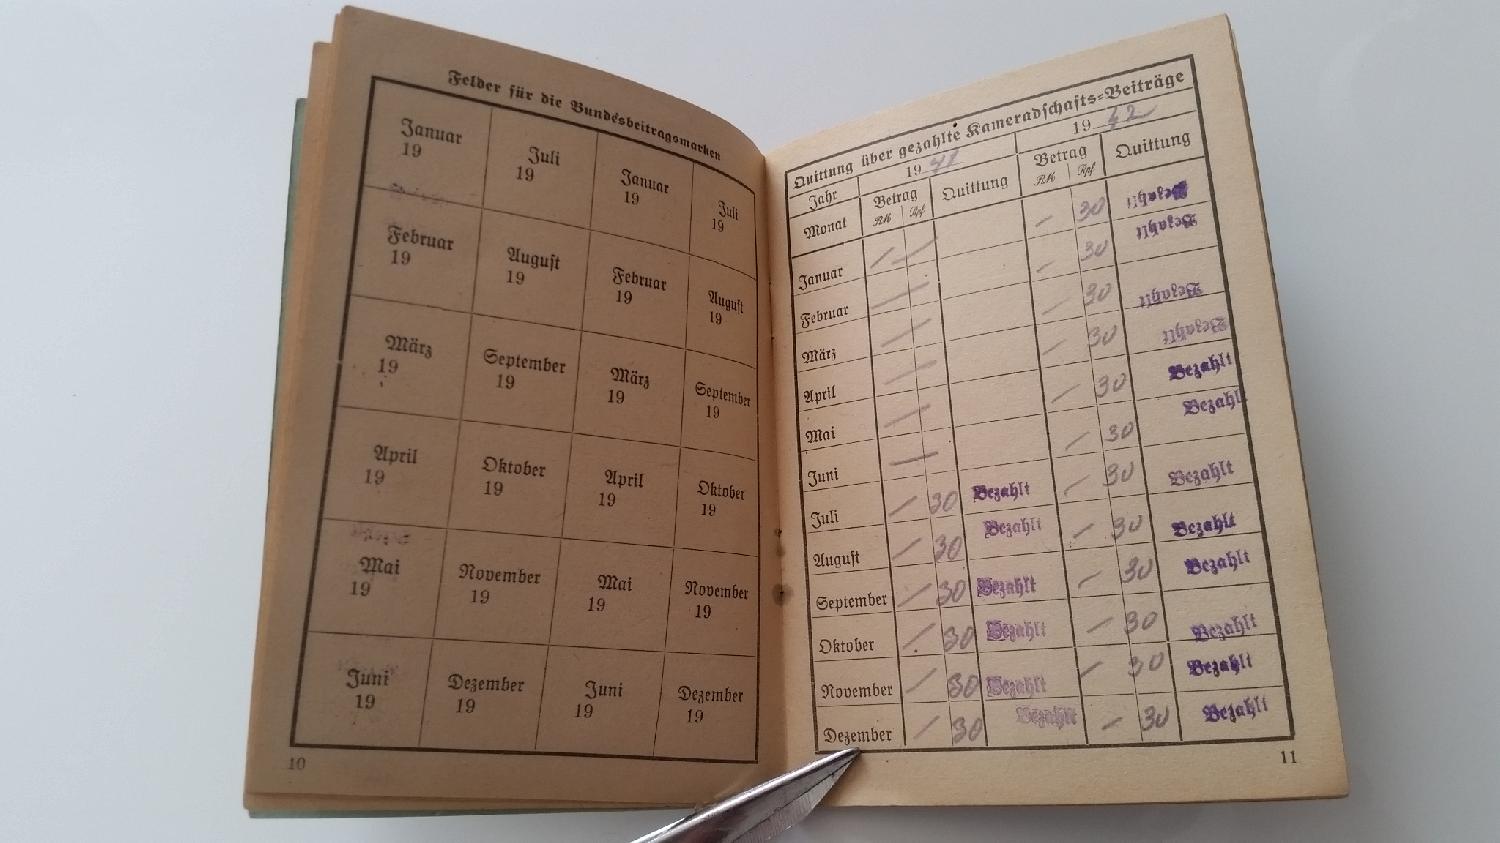 Felder für die Bundesbeitragsmarken
Januar Juli Januar Juli
19 19 19 19
Februar August Februar August
19 19 19 19
März September März September
19 19 19 19
April Oktober April Oktober
19 19 19 19
Mai November Mai November
19 19 19 19
Juni Dezember Juni Dezember
19 19 19 19
10
Quittung über gezahlte Kameradschafts=Beiträge
Jahr 19 41 19 42
Monat Betrag Quittung Betrag Quittung
RM Rpf RM Rpf
Januar — — — 30 Bezahlt
Februar — — 30 Bezahlt
März — — 30 Bezahlt
April — — 30 Bezahlt
Mai — — 30 Bezahlt
Juni — — 30 Bezahlt
Juli — 30 Bezahlt — 30 Bezahlt
August — 30 Bezahlt — 30 Bezahlt
September — 30 Bezahlt — 30 Bezahlt
Oktober — 30 Bezahlt — 30 Bezahlt
November — 30 Bezahlt — 30 Bezahlt
Dezember — 30 Bezahlt — 30 Bezahlt
11